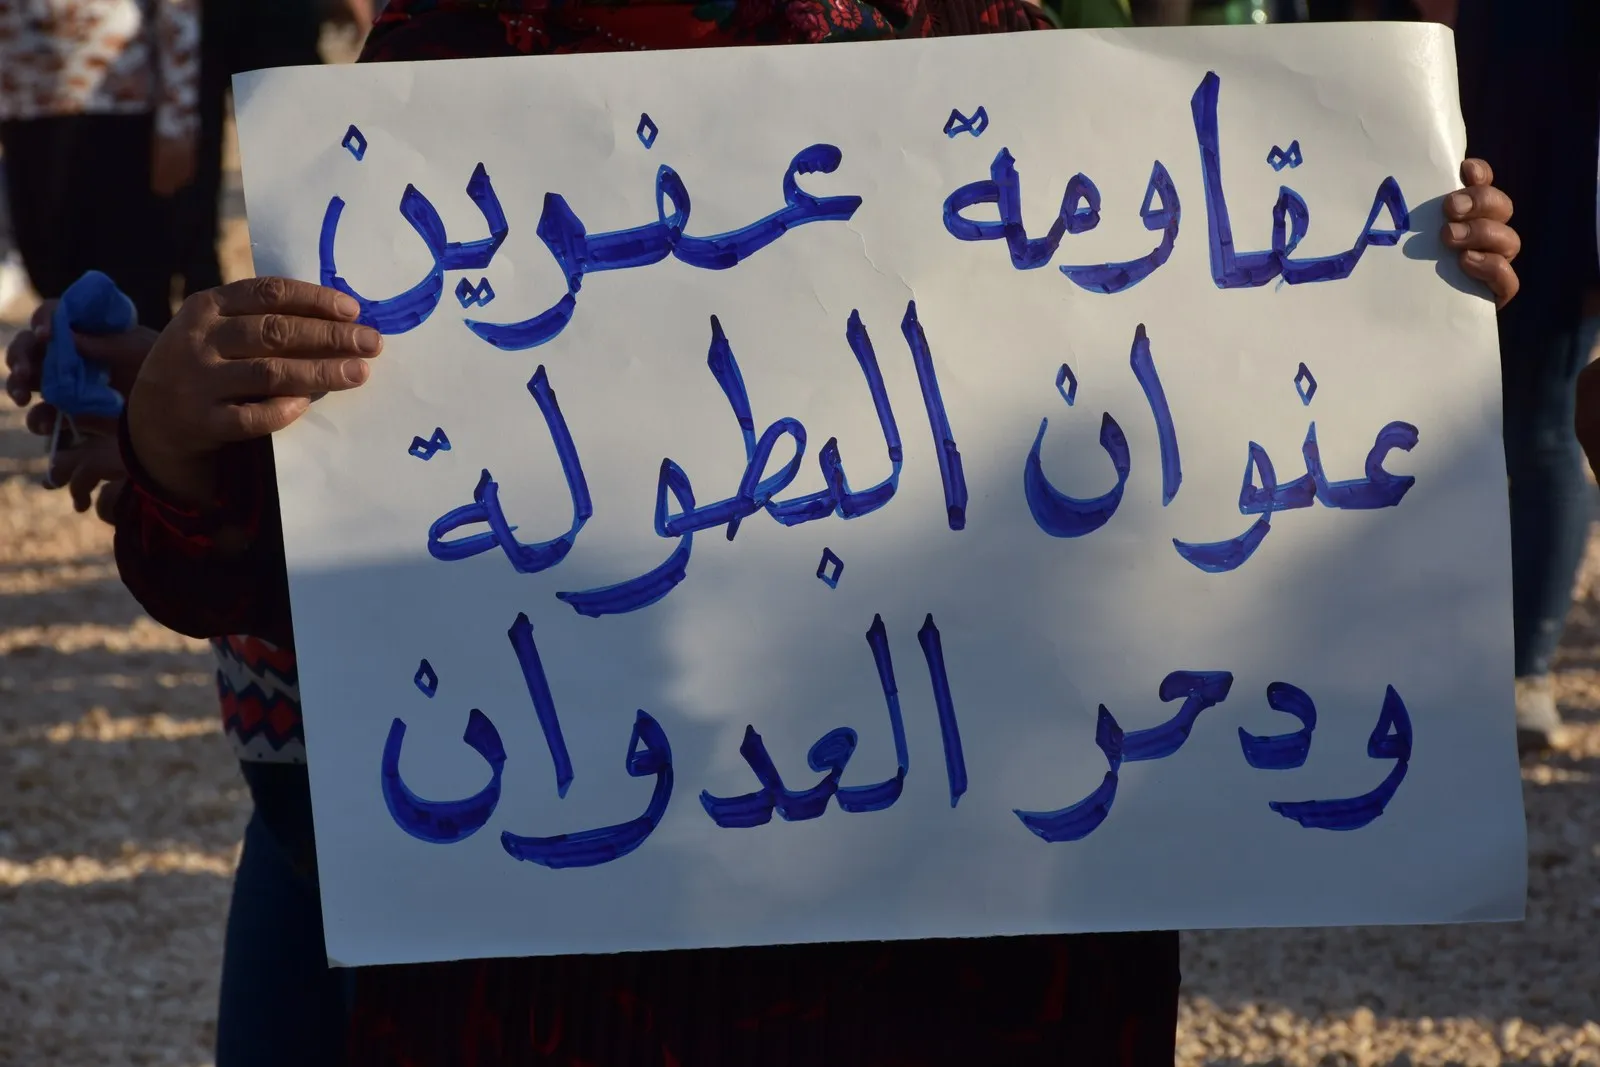 مقاومة عفرين
عنوان البطولة
ودحر العدوان